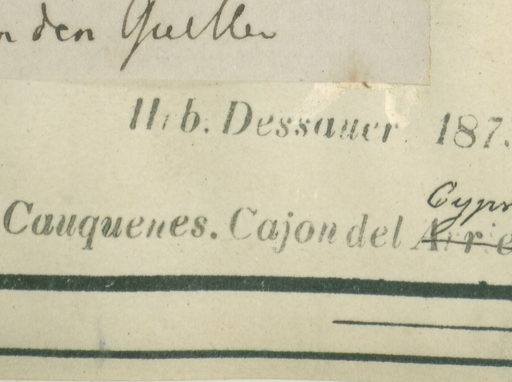 den Quellen
Hrb. Dessauer 187
Cypr
Cauquenes. Cajon del Arrie